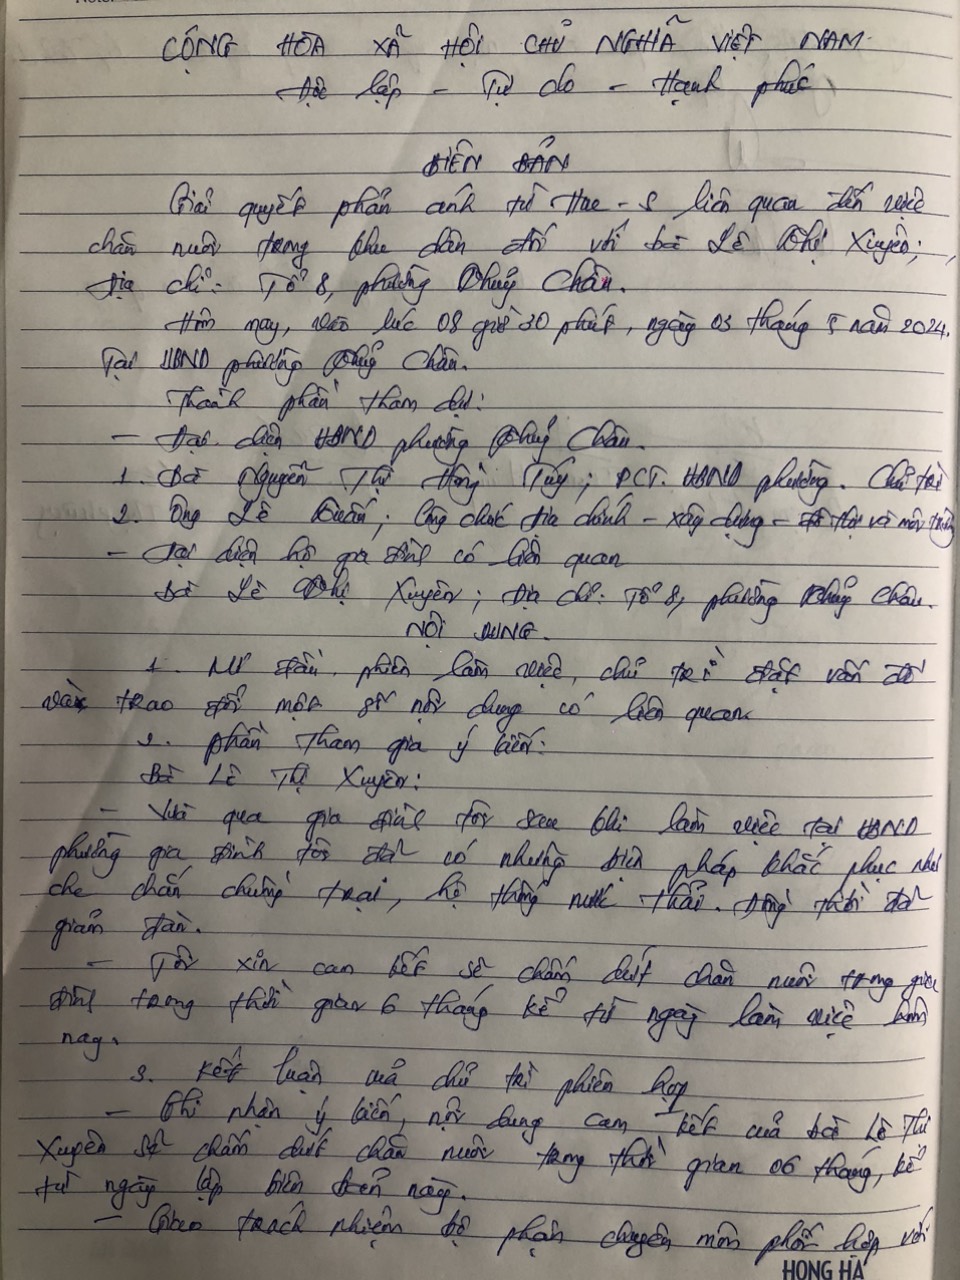 CỘNG HÒA XÃ HỘI CHỦ NGHĨA VIỆT NAM
Độc lập - Tự do - Hạnh phúc
BIÊN BẢN
Giải quyết phản ánh từ Hue-S liên quan đến việc
chăn nuôi trong khu dân đối với bà Lê Thị Xuyên;
Địa chỉ: Tổ 8, phường Thủy Châu.
Hôm nay, vào lúc 08 giờ 30 phút, ngày 03 tháng 5 năm 2024.
Tại UBND phường Thủy Châu.
Thành phần tham dự:
- Đại diện UBND phường Thủy Châu.
1. Bà Nguyễn Thị Hồng Túy; PCT. UBND phường. Chủ trì
2. Ông Lê Tuấn; Công chức địa chính - xây dựng - đô thị và môi trường
- Đại diện hộ gia đình có liên quan
Bà Lê Thị Xuyên; địa chỉ: Tổ 8, phường Thủy Châu.
NỘI DUNG.
1. Mở đầu phiên làm việc, chủ trì đặt vấn đề
và trao đổi một số nội dung có liên quan
2. phần tham gia ý kiến:
Bà Lê Thị Xuyên:
- Vừa qua gia đình tôi sau khi làm việc tại UBND
phường gia đình tôi đã có những biện pháp khắc phục như
che chắn chuồng trại, hệ thống nước thải. Đồng thời đã
giảm đàn.
- Tôi xin cam kết sẽ chấm dứt chăn nuôi trong gia
đình trong thời gian 6 tháng kể từ ngày làm việc hôm
nay.
3. Kết luận của chủ trì phiên họp
- Ghi nhận ý kiến, nội dung cam kết của bà Lê Thị
Xuyên sẽ chấm dứt chăn nuôi trong thời gian 06 tháng, kể
từ ngày lập biên bản này.
- Giao trách nhiệm bộ phận chuyên môn phối hợp với
HONG HA